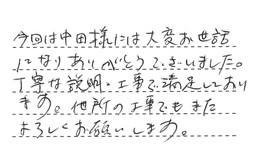 今回は中田様には大変お世話
になりありがとうございました。
丁寧な説明・工事で満足しており
ます。他所の工事でもまた
よろしくお願いします。